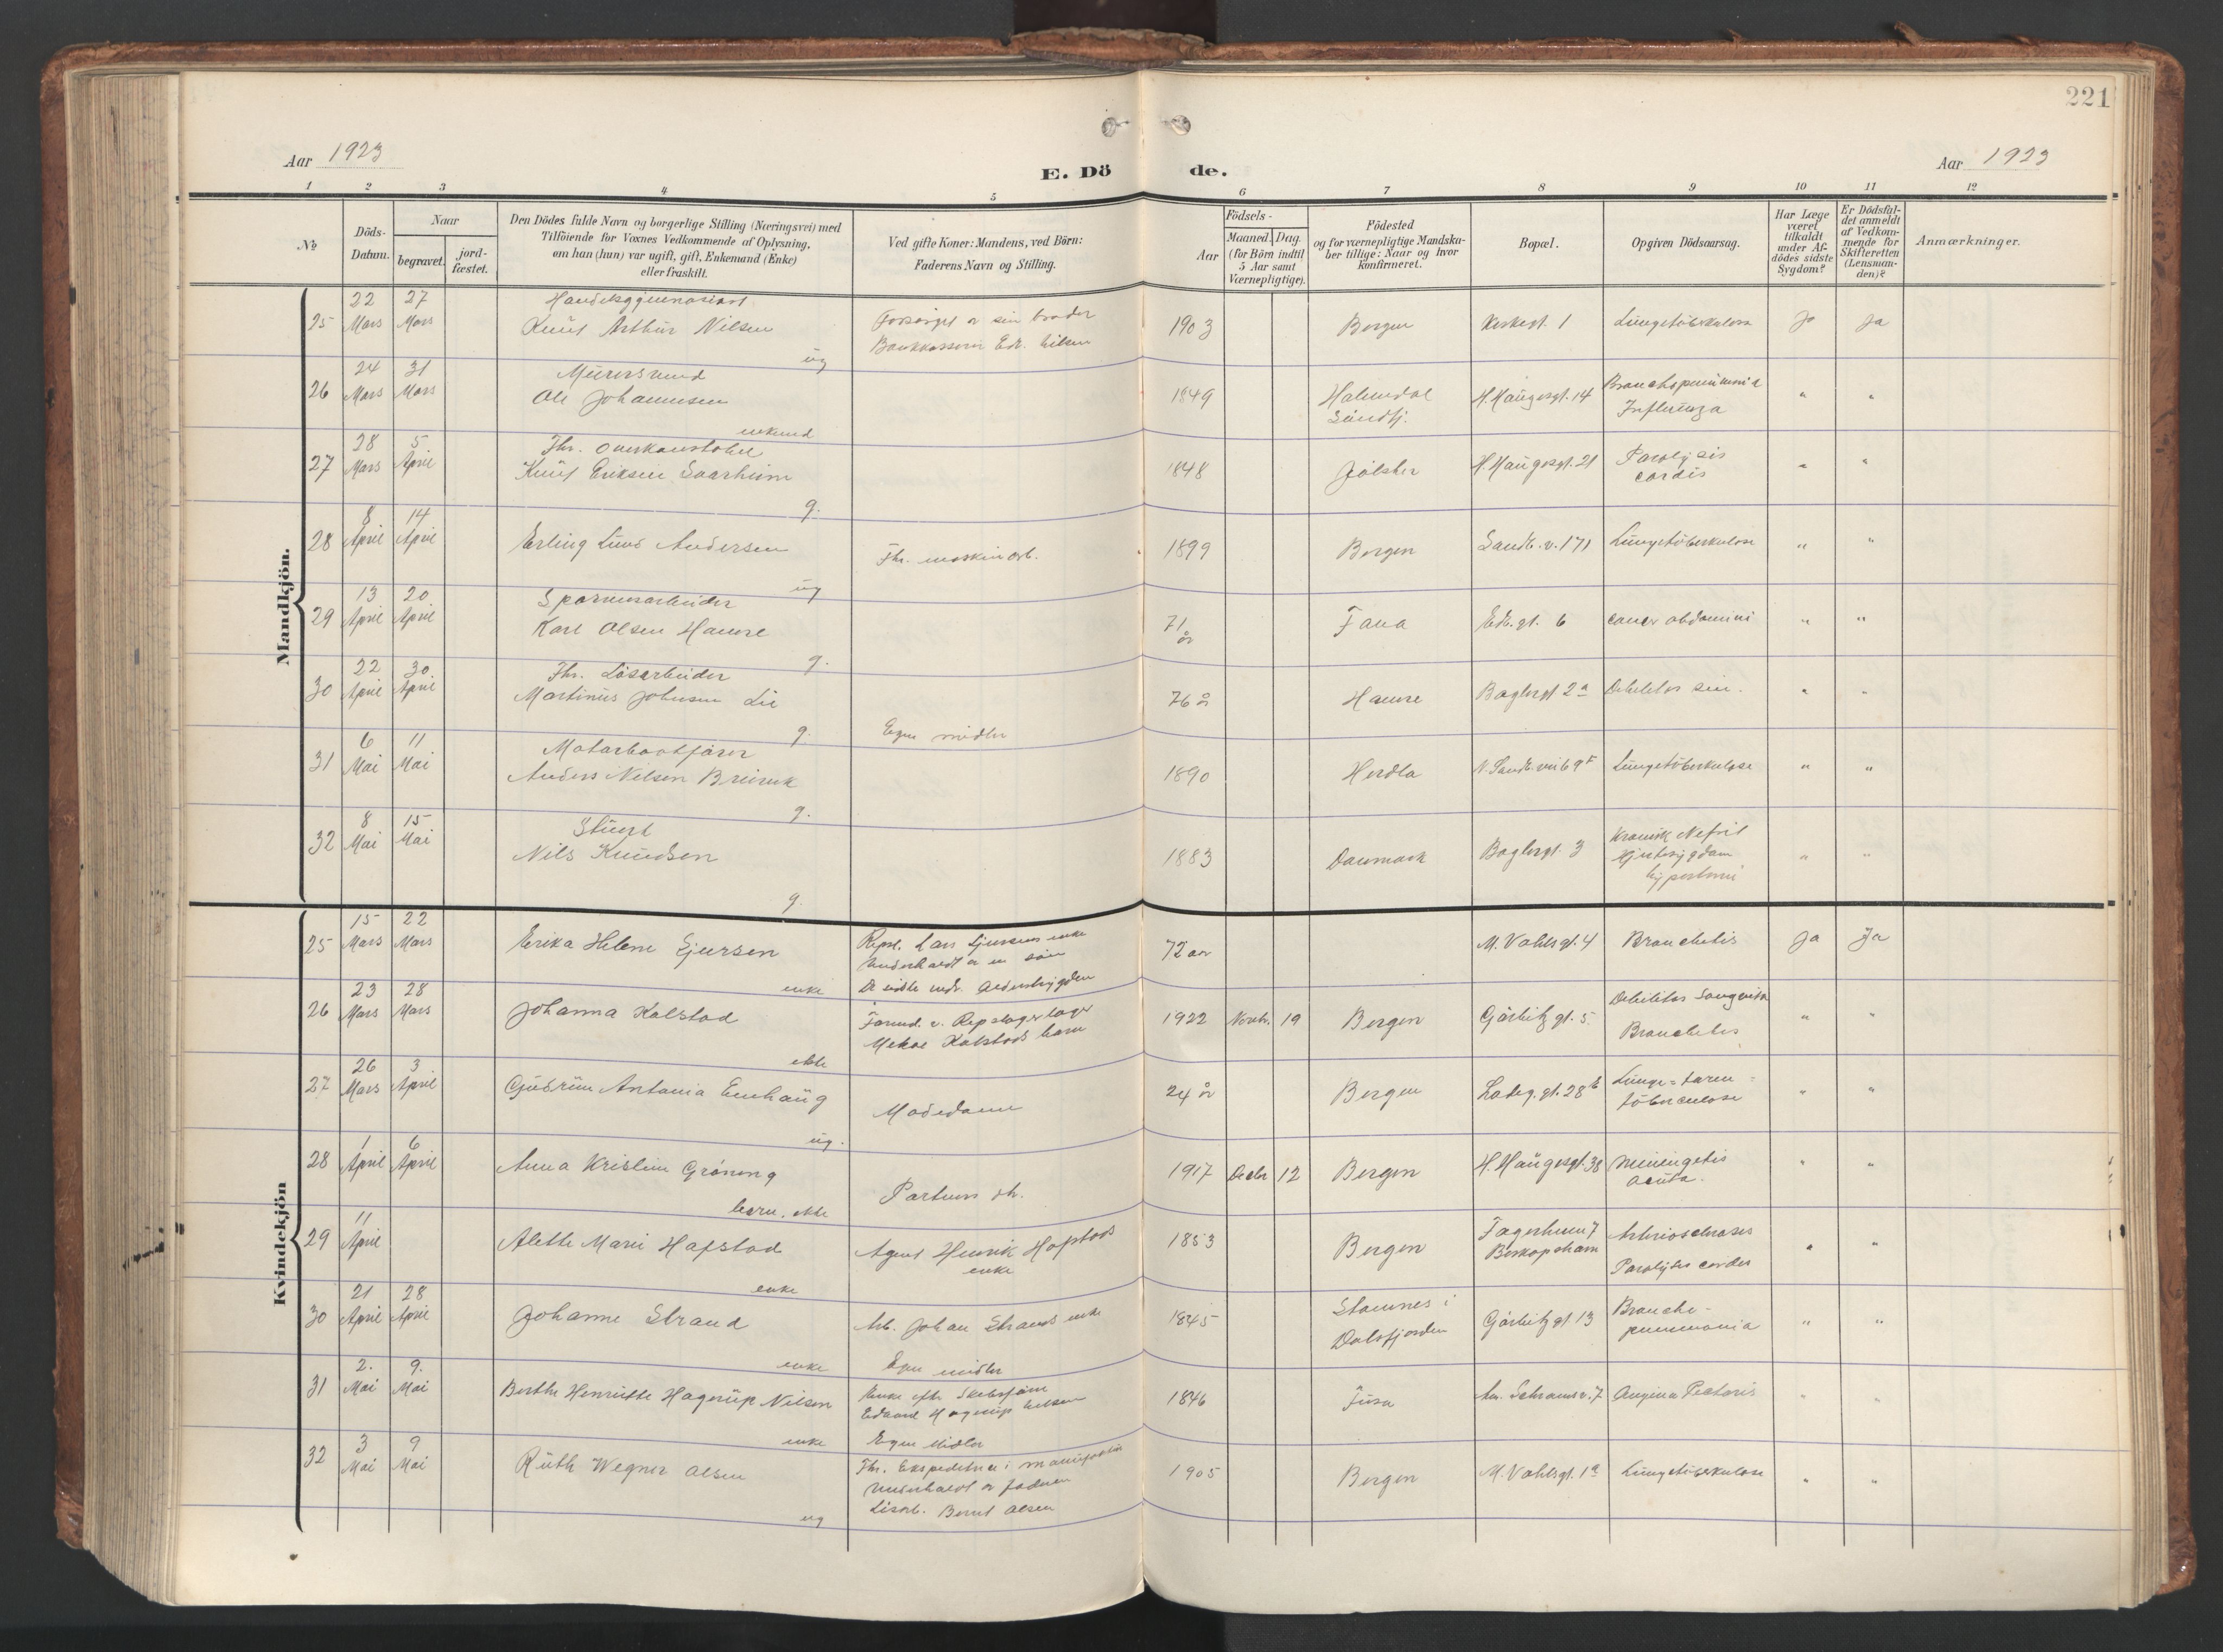 221
Aar 1923
E. Dö de.
Aar 1923
1 2 3 4 5 6 7 8 9 10 11 12
No
Döds-Datum.
Naar
begravet.
jord-fæstet.
Den Dödes fulde Navn og borgerlige Stilling (Næringsvei) med
Tilföiende for Voxnes Vedkommende af Oplysning,
om han (hun) var ugift, gift, Enkemand (Enke)
eller fraskilt.
Ved gifte Koner: Mandens, ved Börn:
Faderens Navn og Stilling.
Födsels-
Aar
Maaned. Dag.
(for Börn indtil
5 Aar samt
Værnepligtige).
Födested
og for værnepligtige Mandska-
ber tillige: Naar og hvor
konfirmeret.
Bopæl.
Opgiven Dödsaarsag.
Har Læge
været
tilkaldt
under Af-
dödes sidste
Sygdom?
Er Dödsfal-
det anmeldt
af Vedkom-
mende for
Skifteretten
(Lensman-
den)?
Anmærkninger.
Mandkjön.
25 22 Mars 27 Mars Handelsgymnasiast
Knut Arthur Nilsen ug
Forsörget a sin broder
Bankkasserer Edv. Nilsen
1903 Bergen Kirkegt. 1 Lungetuberkulose Ja Ja
26 24 Mars 31 Mars Murersvend
Ole Johannesen enkemd
1849 Holmedal
Söndfj. H. Haugesgt. 14 Bronchopneumonia
Influenza " "
27 28 Mars 5 April Fhr. Overkonstabel
Knut Eriksen Saarheim g.
1848 Jölster H. Haugesgt. 21 Paralysis
cordis " "
28 8 April 14 April Erling Andersen ug
Fhr. maskinarb.
1899 Bergen Sandv. v. 171 Lungetuberkulose " "
29 13 April 20 April Sporveisarbeider
Karl Olsen Hamre g.
71 år Fana 6 cancer abdomini " "
30 22 April 30 April Fhr. Lösarbeider
Martinus Johnsen Lie g.
76 å Hamre Baglergt 2a Debilitas sen. " "
31 6 Mai 11 Mai Motorbaatförer
Anders Nilsen g.
Egne midler
1890 Herdla N. Sandv. vei 69 Lungetuberkulose " "
32 8 Mai 15 Mai Stuert
Nils Knudsen g.
1883 Danmark Baglergt. 3 Kronisk Nefrit
Hjertesygdom " "
Kvindekjön
25 15 Mars 22 Mars Erika Helene Gjersen enke
Lars enke
Underholdt a en sön
72 aar M. Vahlsgt. 4 Bronchitis Ja Ja
26 23 Mars 28 Mars Johanna Kalstad ekte
Formd. v. Repslagerlager
Kalstads barn
1922 Novbr. 19 Bergen Görbitzgt. 5 Debilitas
Bronchitis " "
27 26 Mars 3 April Gudrun Antonia Enehaug ug.
Modedame
24 å Bergen Ladeg. gt. 28b Lunge = tarm =
tuberculose " "
28 1 April 6 April Anna Kristine Gröning
barn. ekte
1917 Decbr 12 Bergen H. Haugesgt. 38 Meningetis
acuta. " "
29 11 April Alette Marie Hafstad enke
Agent Henrik Hafstads
enke
1853 Bergen Fagerheim 7
Arteriosclerosis
Paralysis cordis " "
30 21 April 28 April Johanne Strand enke
Arb. Johan Strands enke
1845 Stamnes i
Dalsfjorden Görbitzgt 13 Broncho-
pneumonia " "
31 2. Mai 9. Mai Berthe Henriette Hagerup Nilsen enke
Egne midler
Enke efter Skibsförer
Edvard Hagerup Nilsen
1846 Fusa Schramsv. 7 Angina Pectoris " "
32 3 Mai 9 Mai Ruth Wegner Olsen ug
Egne Midler
Fhr. Ekspeditrice i manufaktur
Underholdt a faderen
Lösarb. Bernt Olsen
1905 Bergen M. Vahlsgt. 1a Lungetuberkulose " "